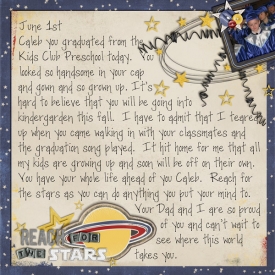 June 1st
Caleb you graduated from the
Kids Club Preschool today.  You
looked so handsome in your cap
and gown and so grown up.  It's
hard to believe that you will be going into
kindergarden this fall.  I have to admit that I teared
up when you came walking in with your classmates and
the graduation song played.  It hit home for me that all
my kids are growing up and soon will be off on their own.
You have your whole life ahead of you Caleb.  Reach for
the stars as you can do anything you put your mind to.
Your Dad and I are so proud
of you and can't wait to
see where this world
takes you.
REACH FOR
THE
STARS